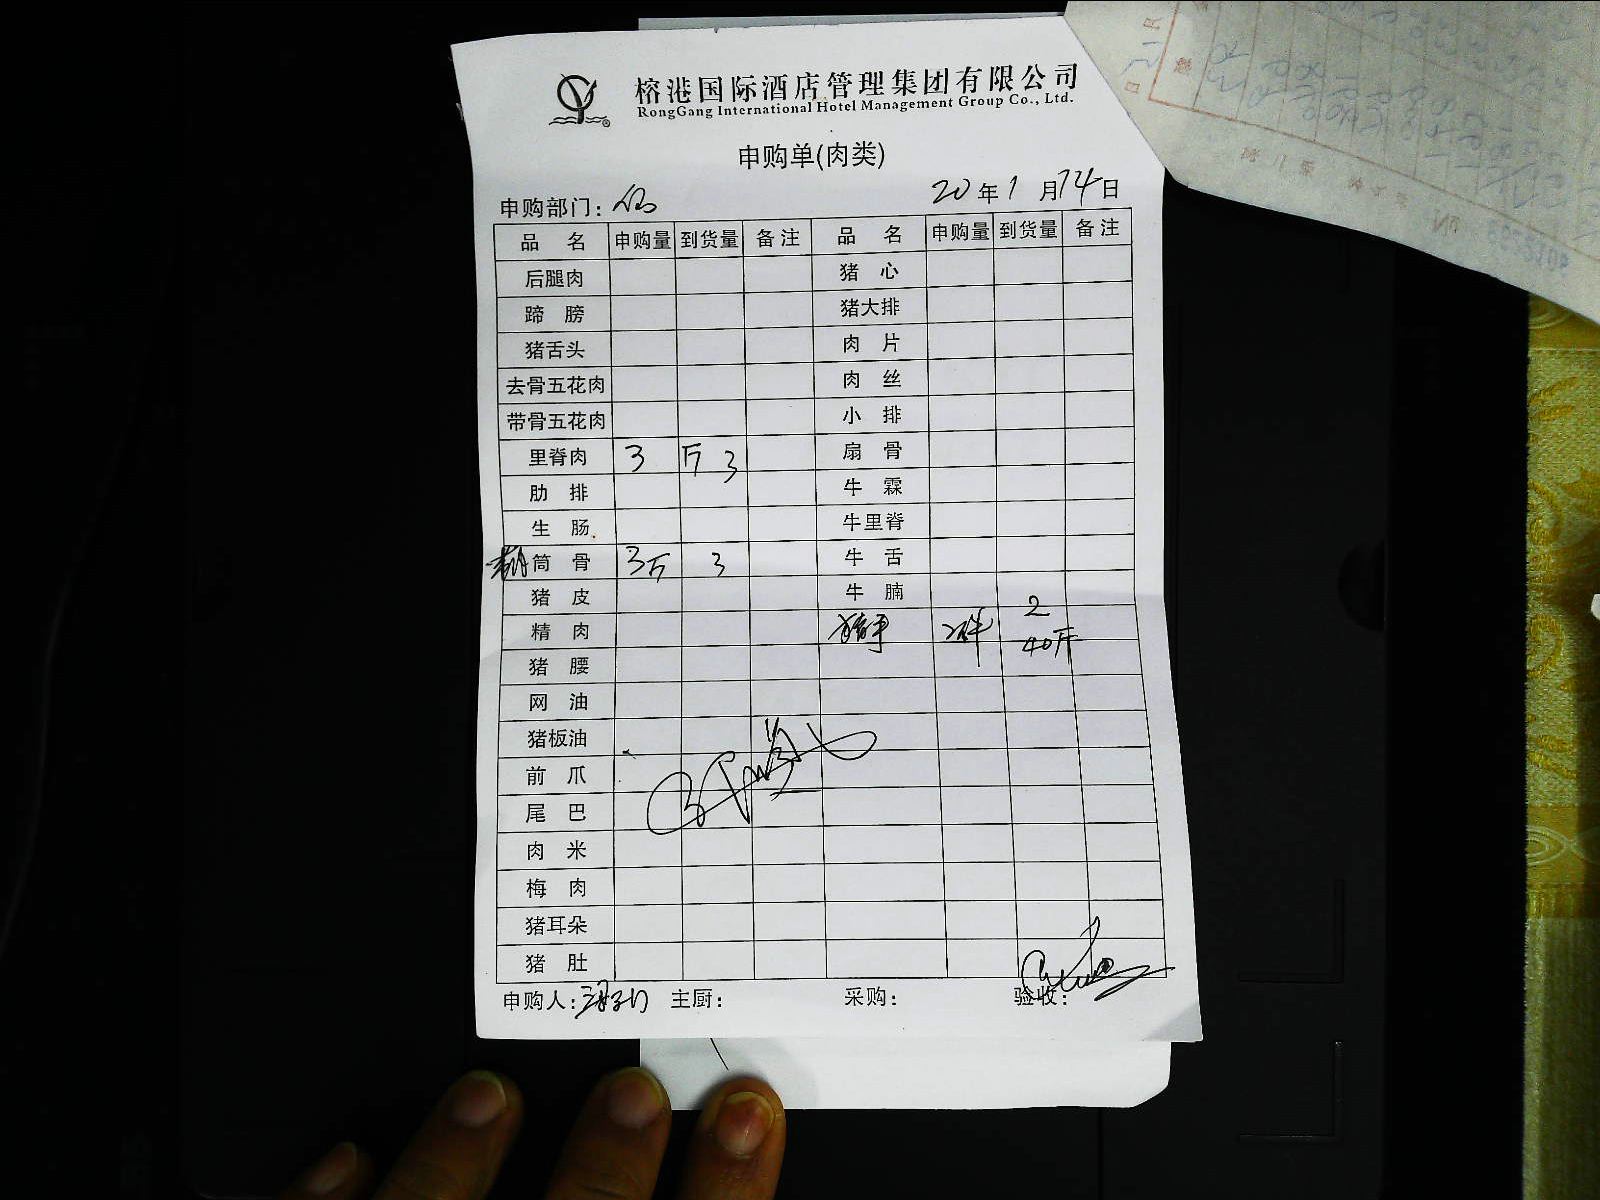 榕港国际酒店管理集团有限公司
RongGang International Hotel Management Group Co., Ltd.
申购单(肉类)
申购部门：
20年1月14日
品名 申购量 到货量 备注 品名 申购量 到货量 备注
后腿肉 猪心
蹄膀 猪大排
猪舌头 肉片
去骨五花肉 肉丝
带骨五花肉 小排
里脊肉 3斤 3 扇骨
肋排 牛霖
生肠 牛里脊
筒骨 3斤 3 牛舌
猪皮 牛腩
精肉 猪手 2件 2
40斤
猪腰
网油
猪板油
前爪
尾巴
肉米
梅肉
猪耳朵
猪肚
申购人： 主厨： 采购： 验收：